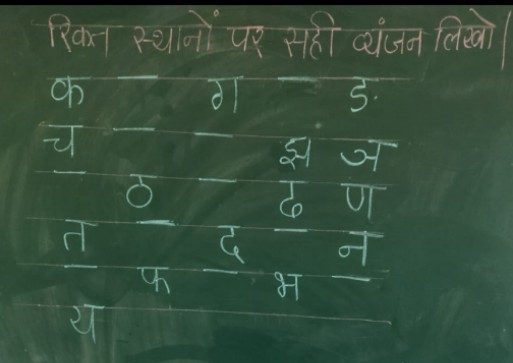 रिक्त स्थानों पर सही व्यंजन लिखो|
क _ ग _ ङ
च _ _ झ ञ
_ ठ _ ढ ण
त _ द _ न
_ फ _ भ _
य